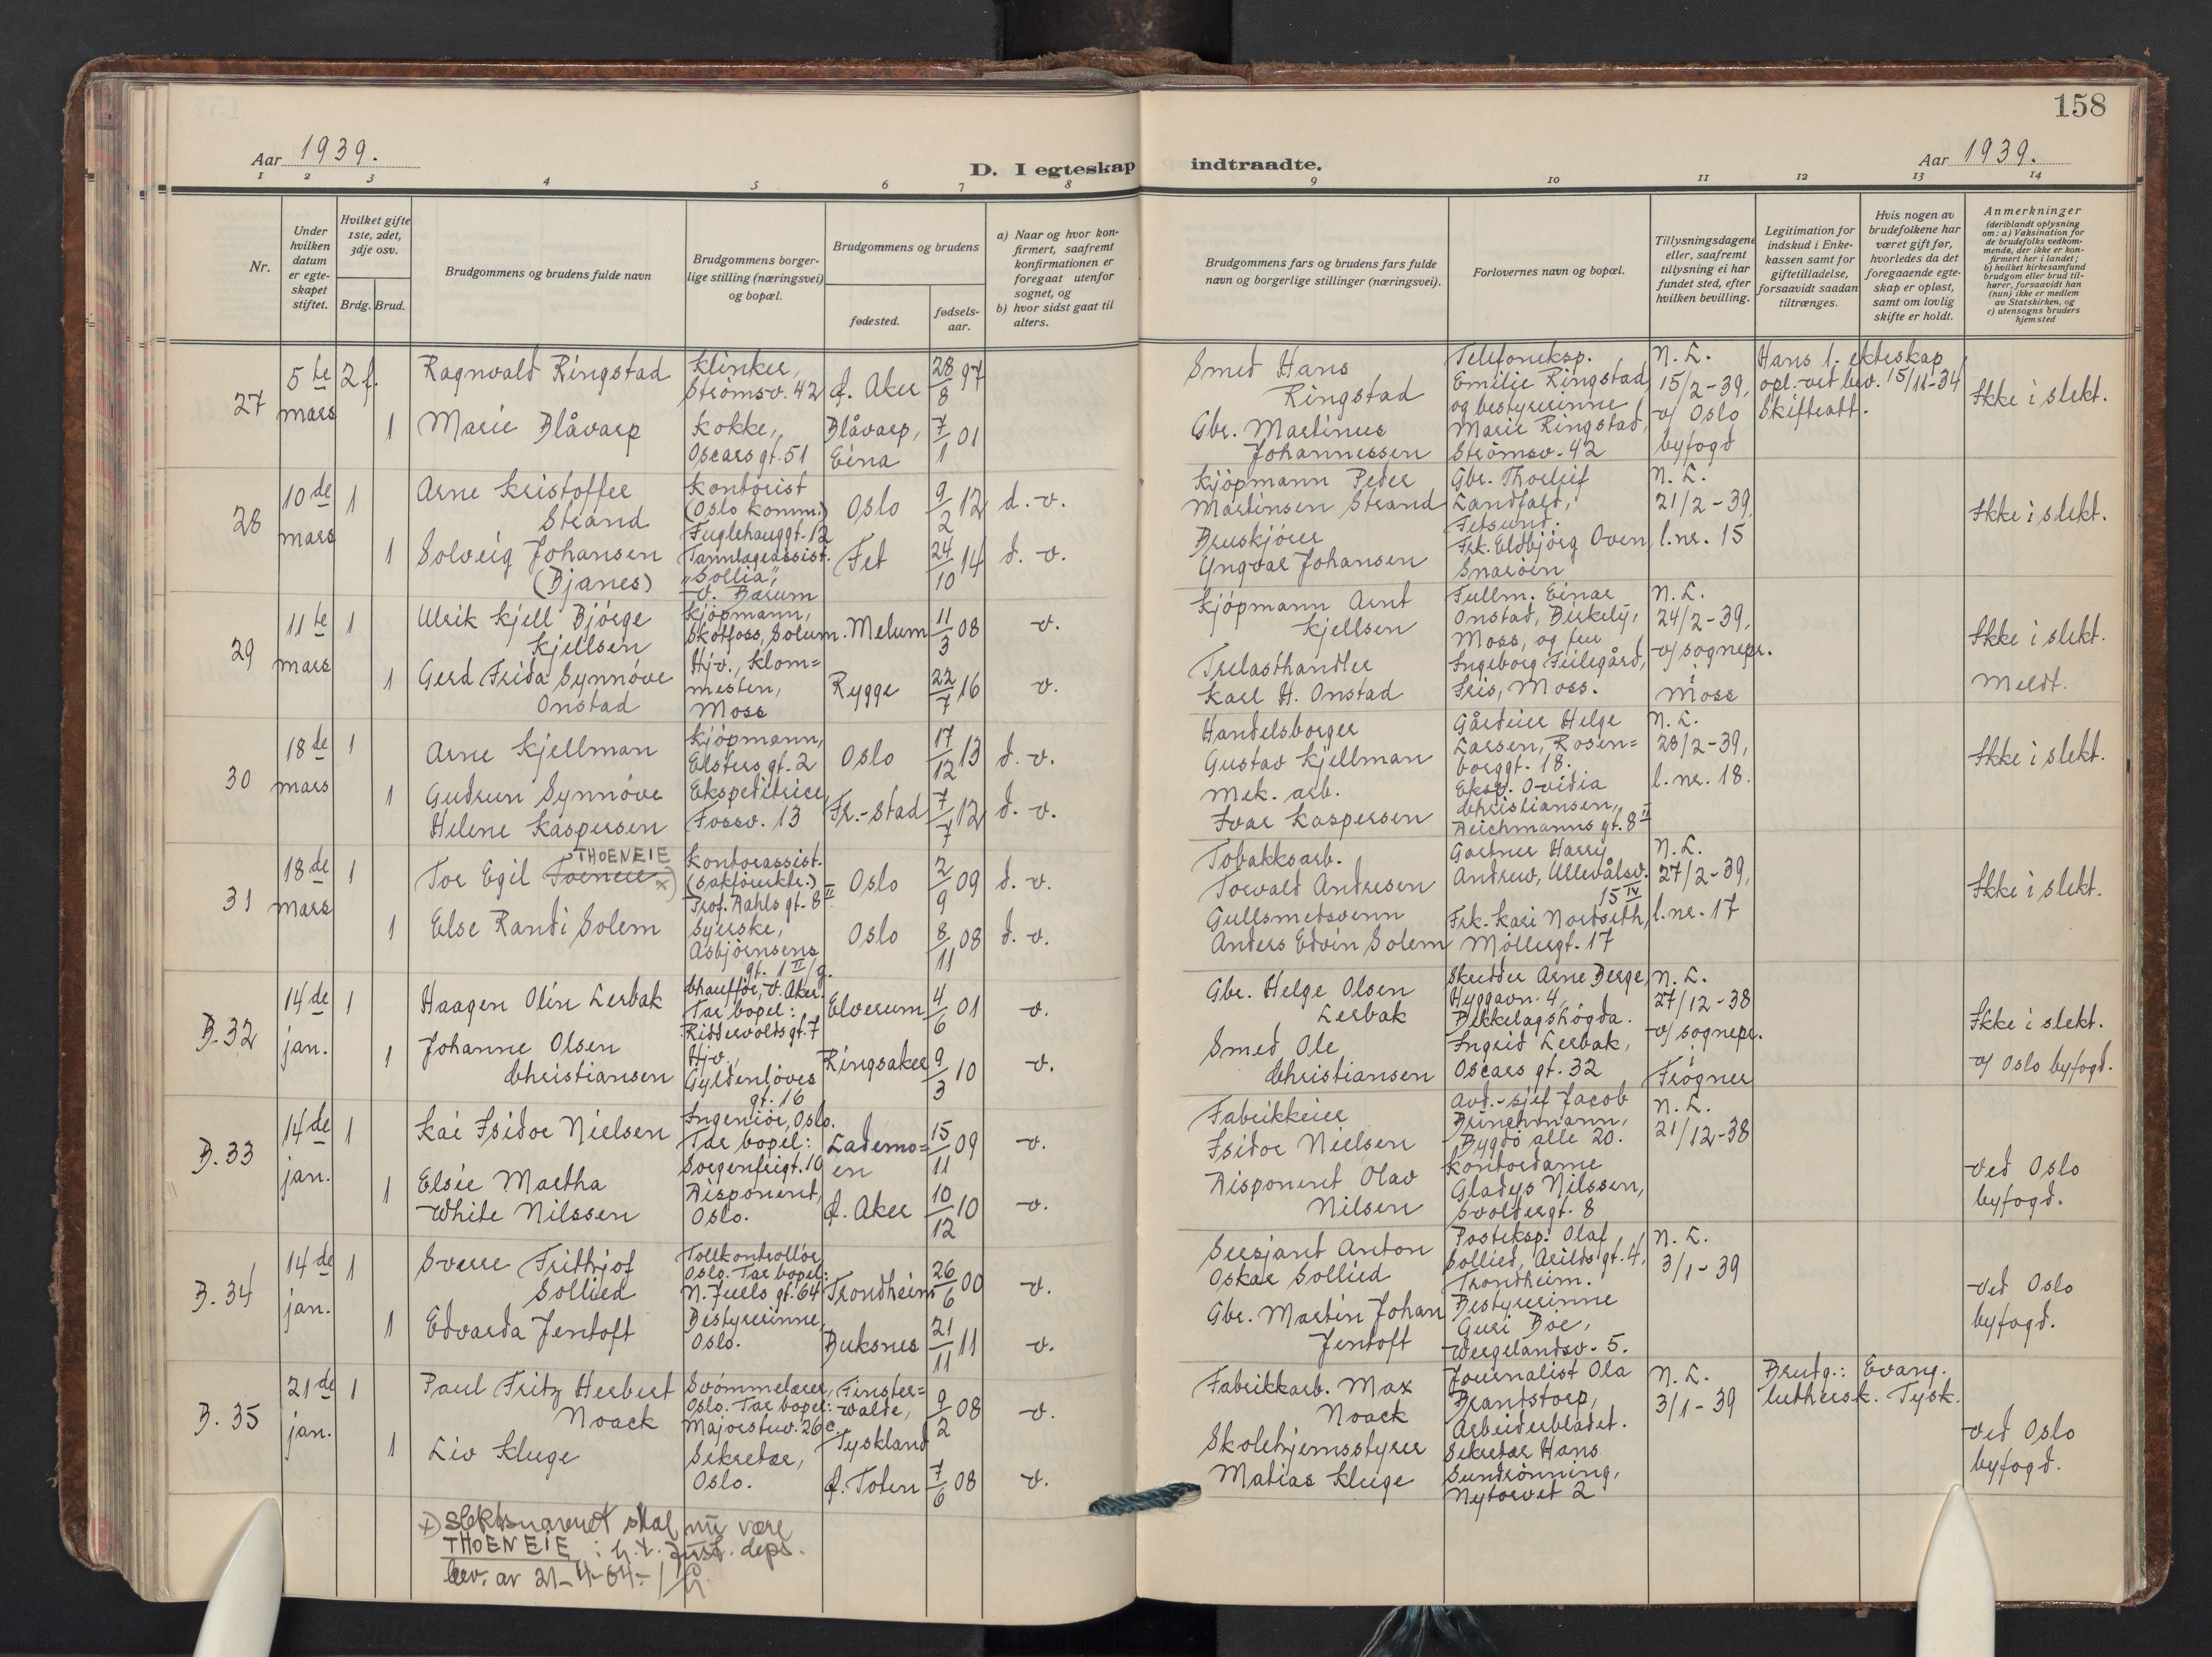 158
Aar 1939.
D. I egteskap indtraadte.
Aar 1939.
1 2 3 4 5 6 7 8 9 10 11 12 13 14
Nr.
Under hvilken datum er egteskapet stiftet.
Hvilket gifte 1ste, 2det, 3dje osv.
Brdg. Brud.
Brudgommens og brudens fulde navn
Brudgommens borgerlige stilling (næringsvei) og bopæl.
Brudgommens og brudens
fødested.
fødselsaar.
a) Naar og hvor konfirmert, saafremt konfirmationen er foregaat utenfor sognet, og
b) hvor sidst gaat til alters.
Brudgommens fars og brudens fars fulde navn og borgerlige stillinger (næringsvei).
Forlovernes navn og bopæl.
Tillysningsdagene eller, saafremt tillysning ei har fundet sted, efter hvilken bevilling.
Legitimation for indskud i Enkekassen samt for giftetilladelse, forsaavidt saadan tiltrænges.
Hvis nogen av brudefolkene har været gift før, hvorledes da det foregaaende egteskap er opløst, samt om lovlig skifte er holdt.
Anmerkninger
(deriblandt oplysning om: a) Vaksination for de brudefolks vedkommende, der ikke er konfirmert her i landet;
b) hvilket kirkesamfund brudgom eller brud tilhører, forsaavidt han (hun) ikke er medlem av Statskirken, og
c) utensogns bruders hjemsted
27
5te mars
2 f.
Ragnvald Ringstad
Klinker,
Strømsv. 42
Ø. Aker
28/8 97
1
Marie Blåvarp
Kokke,
Oscars gt. 51
Blåvarp,
Eina
7/1 01
Smed Hans
Ringstad
Gbr. Martinus
Johannessen
Telefoneksp.
Emilie Ringstad
og bestyrerinne
Marie Ringstad,
Strømsv. 42
N. L.
15/2-39,
v/ Oslo
byfogd
Hans 1. ekteskap
opl. ved bev. 15/11-34
Skifteatt.
Ikke i slekt.
28
10de mars
1
Arne Kristoffer
Strand
Kontorist
(Oslo komm.)
Fuglehauggt. 12
Oslo
9/2 12
d. v.
1
Solveig Johansen
(Bjanes)
Tannlegeassist.
"Sollia",
V. Bærum
Fet
24/10 14
d. v.
Kjöpmann Peder
Martinsen Strand
Bruskjører
Yngvar Johansen
Gbr. Thorleif
Landfald,
Fetsund.
Frk. Eldbjörg Oven,
Snaröen
N. L.
21/2-39,
l. nr. 15
Ikke i slekt.
29
11te mars
1
Ulrik Kjell Bjórge
Kjellsen
Kjöpmann,
Skotfoss, Solum.
Melum
11/3 08
v.
1
Gerd Frida Synnöve
Onstad
Hjv., Klom=
mesten,
Moss
Rygge
22/7 16
v.
Kjöpmann Arnt
Kjellsen
Trelasthandler
Karl H. Onstad
Fullm. Einar
Onstad, Birkely,
Moss, og fru
Ingeborg Feilegård,
Iris, Moss.
N. L.
24/2-39,
v/ sognepr.
i
Moss
Ikke i slekt.
Meldt.
30
18de mars
1
Arne Kjellman
Kjöpmann,
Elsters gt. 2
Oslo
17/12 13
d. v.
1
Gudrun Synnöve
Helene Kaspersen
Ekspeditrice,
Fossv. 13
Fr.-stad
7/7 12
d. v.
Handelsborger
Gustav Kjellman
Mek. arb.
Ivar Kaspersen
Gårdeier Helge
Larsen, Rosen=
borggt. 18.
Eksp. Ovidia
Christiansen,
Deichmanns gt. 8 II
N. L.
28/2-39,
l. nr. 18.
Ikke i slekt.
31
18de mars
1
THOENEIE
Tor Egil Toeneie x)
Kontorassist.
(Sakförerktr.)
Prof. Dahls gt. 8 II
Oslo
2/9 09
d. v.
1
Else Randi Solem
Syerske,
Asbjörnsens
gt. 1 II/g.
Oslo
8/11 08
d. v.
Tobakksarb.
Torvald Andresen
Gullsmedsvenn
Anders Edvin Solem
Gartner Harry
Andrew, Ullevålsv.
15 IV
Frk. Kari Nordseth,
Möllergt. 17
N. L.
27/2-39,
l. nr. 17
Ikke i slekt.
B. 32
14de jan.
1
Haagen Olin Lerbak
Chauffør, V. Aker.
Tar bopel:
Riddervolds gt. 7
Elverum
4/6 01
v.
1
Johanne Olsen
Christiansen
Hjv.,
Gyldenlöves
gt. 16
Ringsaker
9/3 10
v.
Gbr. Helge Olsen
Lerbak
Smed Ole
Christiansen
Skredder Arne Berge,
Hyggavn. 4,
Bekkelagshögda.
Ingrid Lerbak,
Oscars gt. 32
N. L.
27/12-38
v/ sognepr.
i
Frogner
Ikke i slekt.
v/ Oslo byfogd.
B. 33
14de jan.
1
Kai Isidor Nielsen
Ingeniör, Oslo.
Tar bopel:
Sorgenfrigt. 10
Lademo=
en
15/11 09
v.
1
Elsie Martha
White Nilssen
Disponent,
Oslo.
Ø. Aker
10/12 10
v.
Fabrikkeier
Isidor Nielsen
Disponent Olav
Nilsen
Avd.-sjef Jacob
Brinchmann,
Bygdö alle 20.
Kontordame
Gladys Nilssen,
Svoldergt. 8
N. L.
21/12-38
ved Oslo
byfogd.
B. 34
14de jan.
1
Sverre Frithjof
Sollied
Tollkontrollör,
Oslo. Tar bopel:
N. Juels gt. 64
Trondheim
26/6 00
v.
1
Edvarda Jentoft
Bestyrerinne,
Oslo.
Buksnes
21/11 11
v.
Sersjant Anton
Oskar Sollied
Gbr. Martin Johan
Jentoft
Posteksp. Olaf
Sollied, Arilds gt. 4,
Trondheim.
Bestyrerinne
Guri Boe,
Wergelandsv. 5.
N. L.
3/1-39
ved Oslo
byfogd.
B. 35
21de jan.
1
Paul Fritz Herbert
Noack
Svömmelærer,
Oslo. Tar bopel:
Majorstuv. 26 c.
Finster=
walde,
Tyskland
9/2 08
v.
1
Liv Kluge
Sekretær,
Oslo.
Ø. Toten
7/6 08
v.
Fabrikkarb. Max
Noack
Skolehjemsstyrer
Matias Kluge
Journalist Ola
Brandstorp,
Arbeiderbladet.
Sekretær Hans
Sundrönning,
Nytorvet 2
N. L.
3/1-39
Brudg.: Evang.
luthersk. Tysk.
ved Oslo
byfogd.
x) slektsnavnet skal nu være
THOENEIE i h.t. Just. deps.
bev. av 21-4-64-